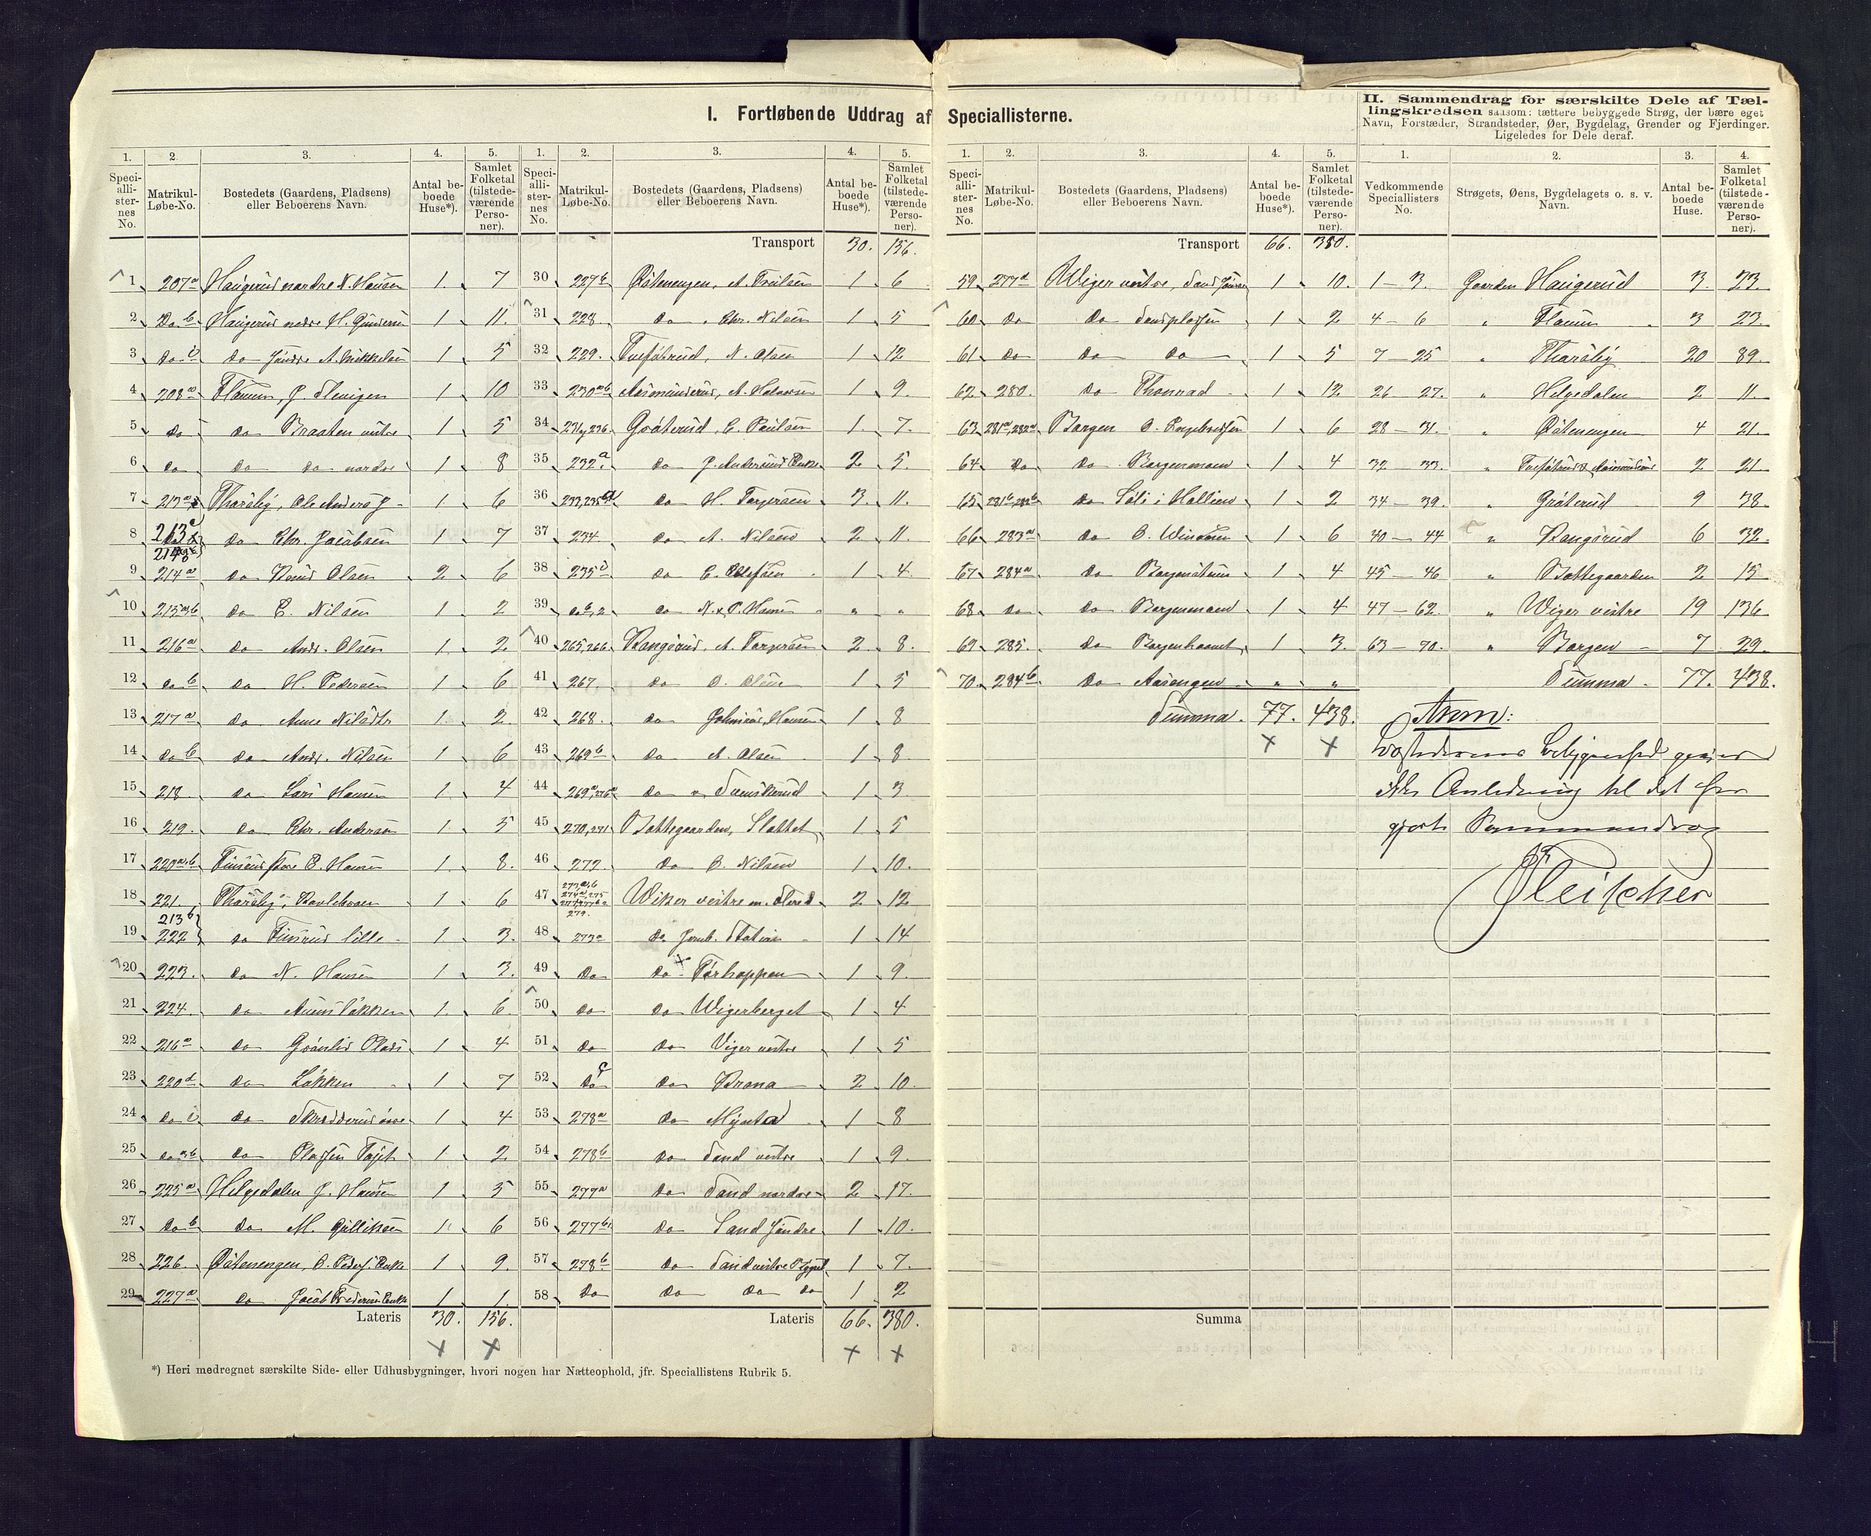 I. Fortløbende Uddrag af Speciallisterne.
1. 2. 3. 4. 5.
Speciallisternes No. Matrikul-Løbe-No. Bostedets (Gaardens, Pladsens) eller Beboerens Navn. Antal beboede Huse*). Samlet Folketal (tilstedeværende Personer).
1 207a Haugerud nordre N. Hansen 1 7
2 Do b Haugerud nedre H. Gundersen 1 11.
3 Do c Do søndre A. Mikkelsen 1 5
4 208a Flauum, P. 1 10
5 Do Do Braaten vestre 1 5
6 Do Do Do nordre 1 8
7 213a Tharaldby, Ole Anders 1 6
8 213a Do Chr. Jacobsen 1 7
9 214a Do Knud Olsen 2 6
10 215a,b Do C. Nilsen 1 2
11 216a Do Andr. Olsen 1 2
12 Do b Do H. Pedersen 1 6
13 217a Do Anne Nilsdtr 1 2
14 Do b Do Andr. Nilsen 1 6
15 218. Do Lars Hansen 1 4
16 219. Do Chr. Andersen 1 5
17 220a,b store B. Hansen 1 8.
18 221. 1 6
19 213b 222 Do lille 1 3.
20 223. Do N. Hansen 1 3.
21 224. Do 1 6
22 216a Do Grønlid 1 4
23 220d Do Løkken 1 7
24 Do Do 1 4
25 Do Do Pladsen 1 2
26 225a Helgedalen J. Hansen 1 5
27 Do b Do M. Gulliksen 1 6
28 226. Østenengen, O. Peders. Enke 1 9.
29 227a Do Jacob Enke 1 1.
Lateris 30. 156.
× ×
*) Heri medregnet særskilte Side- eller Udhusbygninger, hvori nogen har Natteophold, jfr. Speciallistens Rubrik 5.
1. 2. 3. 4. 5.
Speciallisternes No. Matrikul-Løbe-No. Bostedets (Gaardens, Pladsens) eller Beboerens Navn. Antal beboede Huse*). Samlet Folketal (tilstedeværende Personer).
Transport 30. 156.
30 227b Østenengen, A. 1 6
31 228 Do Chr. Nilsen 1 5
32 229. N. Olsen 1 12
33 230a,b Aasmunderud, A. Halvorsen 1 9.
34 231, 236 Grøterud, C. Paulsen 1 7.
35 232a Do J. Andersens Enke 2 5.
36 233, 235 Do H. Torgersen 3. 11.
37 234 Do A. Nilsen 2 11.
38 235c Do C. Olefsen 1 4.
39 Do Do N. & P. Hansen " "
40 265, 266 Rangsrud, A. Torgersen 2 8.
41 267. Do O. Olsen 1 5
42 268. Do Hansen 1 8
43 269b Do A. Olsen 1 8
44 269a Do 1 3
45 270, 271 Bottegaarden, Slottet 1 5
46 272. Do C. Nilsen 1 10.
47 Wiker vestre 2 12
48 273a Do Jernb. Station 1 14
49 Do Do Torhoppen 1 9.
50 Do Do Wigerberget 1 4
51 Do Do Viger vestre 1 5
52 Do Do Brona 2 10.
53 278a Do Mynta 1 8
54 278b Do Sand vestre 1 9.
55 277a Do Sand nordre 2 17.
56 277b Do Sand søndre 1 10.
57 278b Do Sand vestre 1 7.
58 Do Do Do Do 1 2
Lateris 66. 380.
× ×
1. 2. 3. 4. 5.
Speciallisternes No. Matrikul-Løbe-No. Bostedets (Gaardens, Pladsens) eller Beboerens Navn. Antal beboede Huse*). Samlet Folketal (tilstedeværende Personer).
Transport 66. 380.
59 277d Wiger vestre, Sand 1 10.
60 Do Do Sandpladsen 1 2
61 Do Do Do 1 5
62 280. Do Thonrud 1 12
63 281a, 282a Borgen O. Engebretsen 1 6
64 Do Do Borgenmoen 1 4
65 281b, 282b Do 1 2
66 283a Do 1 6
67 284a Do Borgenstuen 1 4
68 Do Do Borgenmoen 1 4
69 285. Do 1 3.
70. 294b Do Aasengen " "
Summa. 77. 438.
× ×
Summa
II. Sammendrag for særskilte Dele af Tællingskredsen saasom: tættere bebyggede Strøg, der bære eget Navn, Forstæder, Strandsteder, Øer, Bygdelag, Grender og Fjerdinger. Ligeledes for Dele deraf.
1. 2. 3. 4.
Vedkommende Speciallisters No. Strøgets, Øens, Bygdelagets o. s. v. Navn. Antal beboede Huse. Samlet Folketal (tilstedeværende Personer).
1 — 3. Gaarden Haugerud 3. 23.
4 — 6 " Flauum 3 23.
7 — 25 " Tharaldby 20 89.
26 — 27. " Helgedalen 2 11.
28 — 31. " Østenengen 4 21.
32 — 33. " 2 21
34 — 39. " Grøterud 9 38.
40 — 44 " Rangsrud 6 32.
45 — 46 " Bottegaarden 2 15
47 — 62. " Wiger vestre 19 136
63 — 70. " Borgen 7 29.
Summa 77. 438.
Anm:
Bostedernes Beliggenhed giver
ikke Anledning til det her
Sammendrag
Fleischer